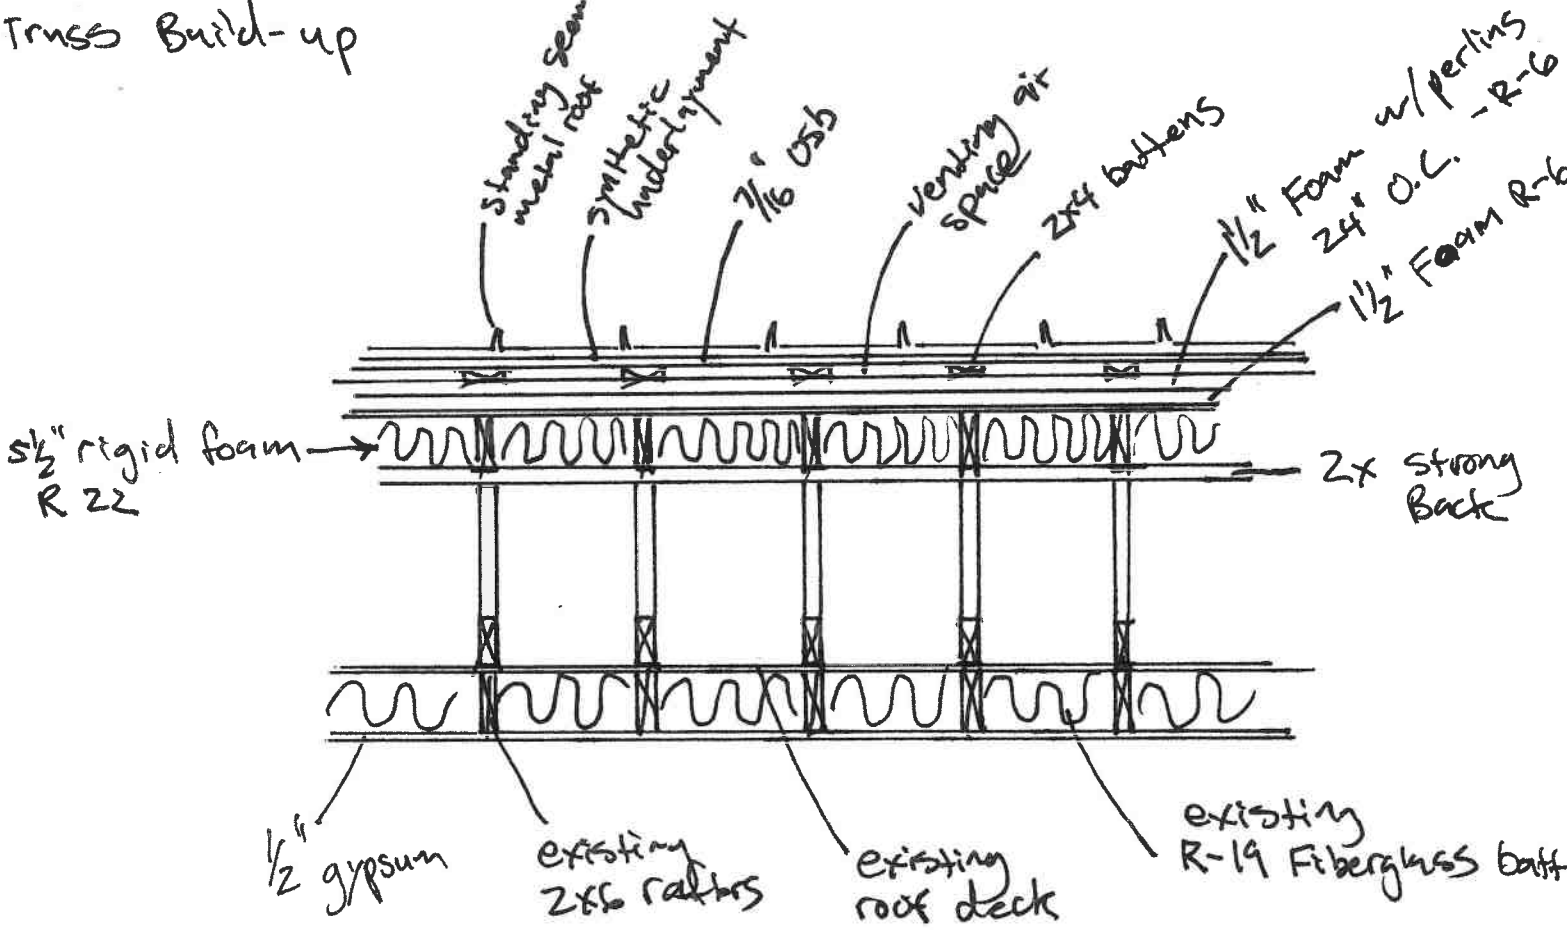 Truss Build-up
standing seam
metal roof
synthetic
underlayment
7/16" OSb
venting air
space
2x4 battens
1 1/2" Foam w/perlins
24" O.C. - R-6
1 1/2" Foam R-6
5 1/2" rigid foam
R 22
2x strong
Back
1/2" gypsum
existing
2x6 rafters
existing
roof deck
existing
R-19 Fiberglass batt